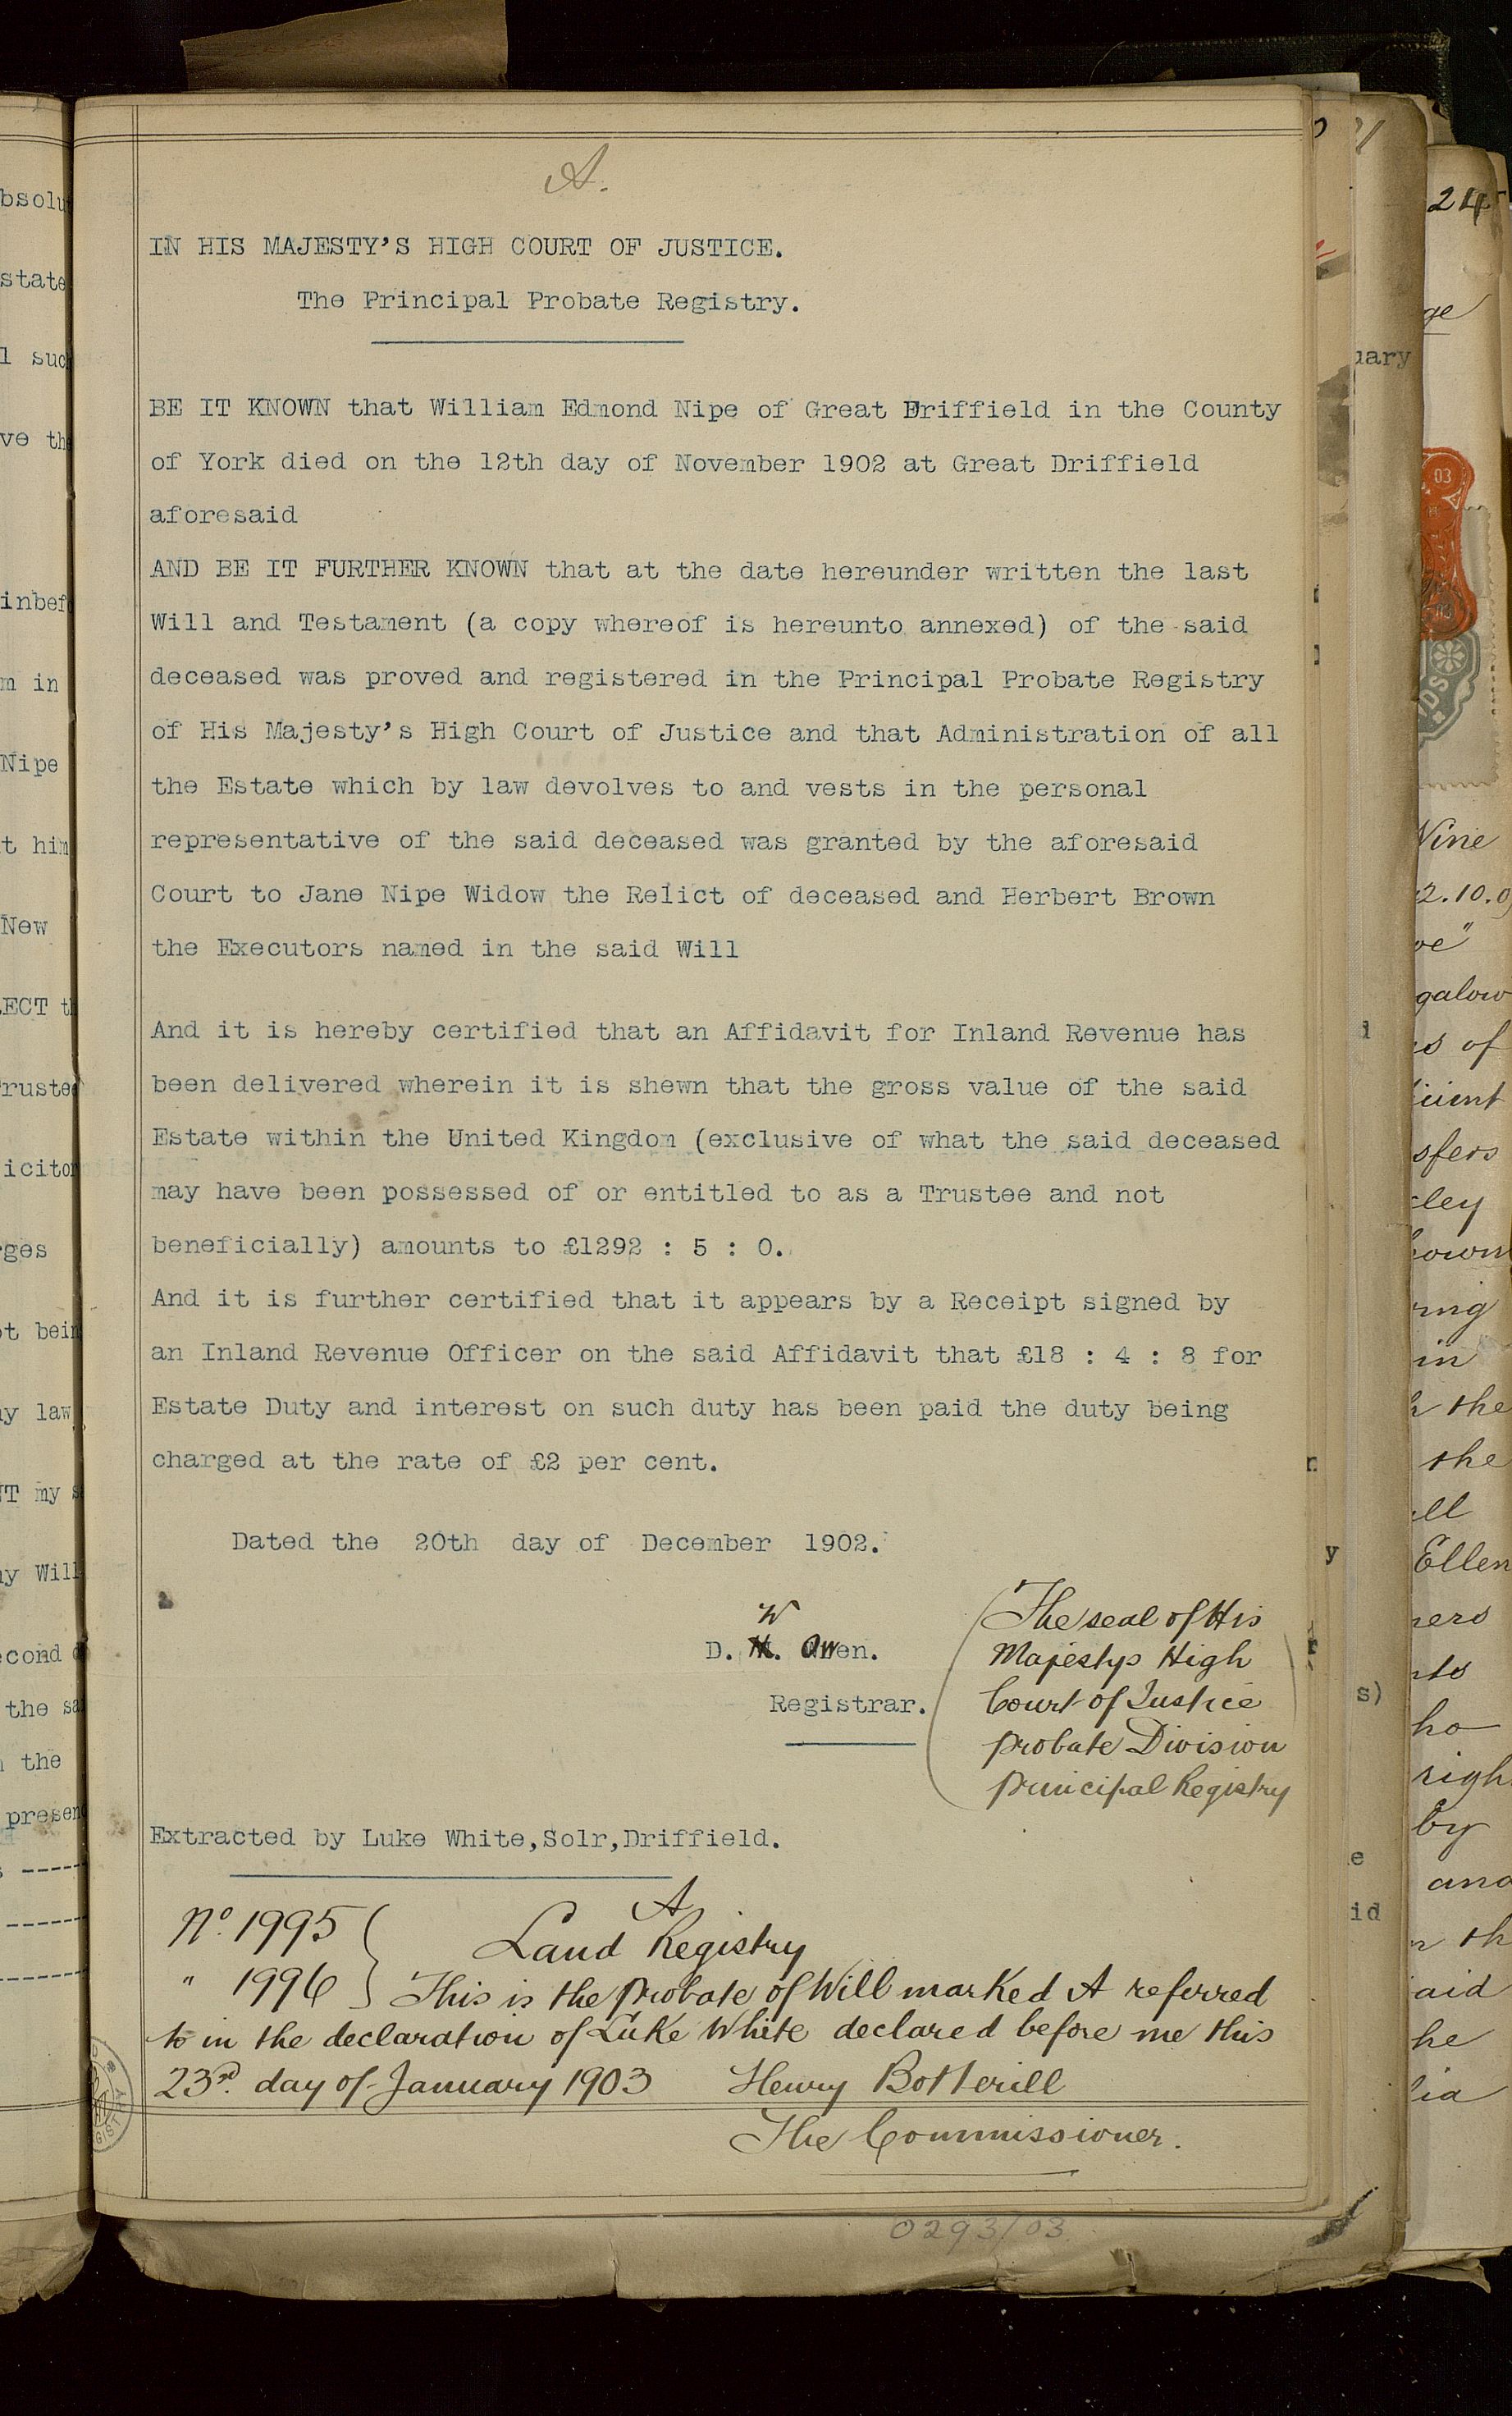 A.
IN HIS MAJESTY'S HIGH COURT OF JUSTICE.
The Principal Probate Registry.
BE IT KNOWN that William Edmond Nipe of Great Driffield in the County
of York died on the 12th day of November 1902 at Great Driffield
aforesaid
AND BE IT FURTHER KNOWN that at the date hereunder written the last
Will and Testament (a copy whereof is hereunto annexed) of the said
deceased was proved and registered in the Principal Probate Registry
of His Majesty's High Court of Justice and that Administration of all
the Estate which by law devolves to and vests in the personal
representative of the said deceased was granted by the aforesaid
Court to Jane Nipe Widow the Relict of deceased and Herbert Brown
the Executors named in the said Will
And it is hereby certified that an Affidavit for Inland Revenue has
been delivered wherein it is shewn that the gross value of the said
Estate within the United Kingdom (exclusive of what the said deceased
may have been possessed of or entitled to as a Trustee and not
beneficially) amounts to £1292 : 5 : 0.
And it is further certified that it appears by a Receipt signed by
an Inland Revenue Officer on the said Affidavit that £18 : 4 : 8 for
Estate Duty and interest on such duty has been paid the duty being
charged at the rate of £2 per cent.
Dated the 20th day of December 1902.
W
D. H. Owen.
Registrar.
The seal of His
Majestys High
Court of Justice
Probate Division
Principal Registry
Extracted by Luke White,Solr,Driffield.
A
No. 1995
" 1996
Land Registry
This is the Probate of Will marked A referred
to in the declaration of Luke White declared before me this
23rd. day of January 1903 Henry Botterill
The Commissioner.
0293/03
bsolu
state
l suc
ve th
inbef
m in
Nipe
t him
New
ECT th
ruste
icitor
ges
t bein
y law
NT my s
y Will
econd
the sa
the
presen
24
ge
uary
03
Nine
2.10.0
galow
s of
icient
sfers
ley
own
ring
in
the
the
ell
Ellen
ners
nts
s)
ho
righ
by
and
id
th
aid
he
lia